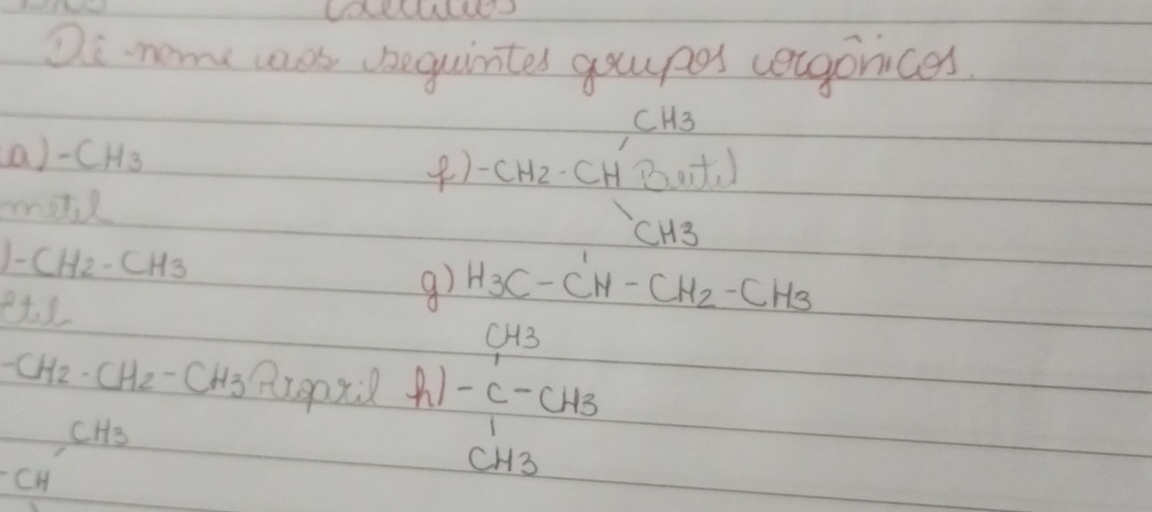 Dê nome aos seguintes grupos orgânicos.
CH3
a) -CH3
f) -CH2-CH Butil
metil
CH3
) -CH2-CH3
g) H3C-CH-CH2-CH3
etil
CH3
-CH2-CH2-CH3 Propril
h) -C-CH3
CH3
CH3
-CH